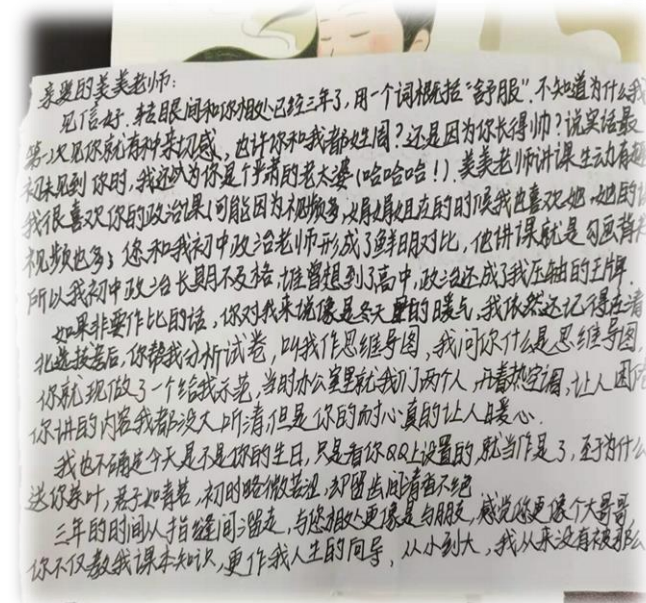 亲爱的美美老师:
见信好.转眼间和你相处已经三年了,用一个词概括"舒服".不知道为什么我
第一次见你就有种亲切感,也许你和我都姓周?还是因为你长得帅?说实话最
初未见到你时,我还以为你是个严肃的老太婆(哈哈哈!).美美老师讲课生动有趣
我很喜欢你的政治课(可能因为视频多,娟娟姐应的时候我也喜欢她,她的
视频也多;您和我初中政治老师形成了鲜明对比,他讲课就是勾画背
所以我初中政治长期不及格,谁曾想到了高中,政治还成了我压轴的王牌.
如果非要作比的话,你对我来说像是冬天里的暖气,我依然还记得在清
北选拔考后,你帮我分析试卷,叫我作思维导图,我问你什么是思维导图,
你就现做了一个给我示范,当时办公室里就我们两个人,开着热空调,让人困
你讲的内容我都没大听清,但是你的耐心真的让人暖心.
我也不确定今天是不是你的生日,只是看你QQ上设置的,就当作是了,至于为什么
送你茶叶,君子如青茗,初时略微苦涩,却留齿间清香不绝
三年的时间从指缝间溜走,与您相处更像是与朋友,感觉你更像个大哥哥
你不仅教我课本知识,更作我人生的向导,从小到大,我从来没有被那么